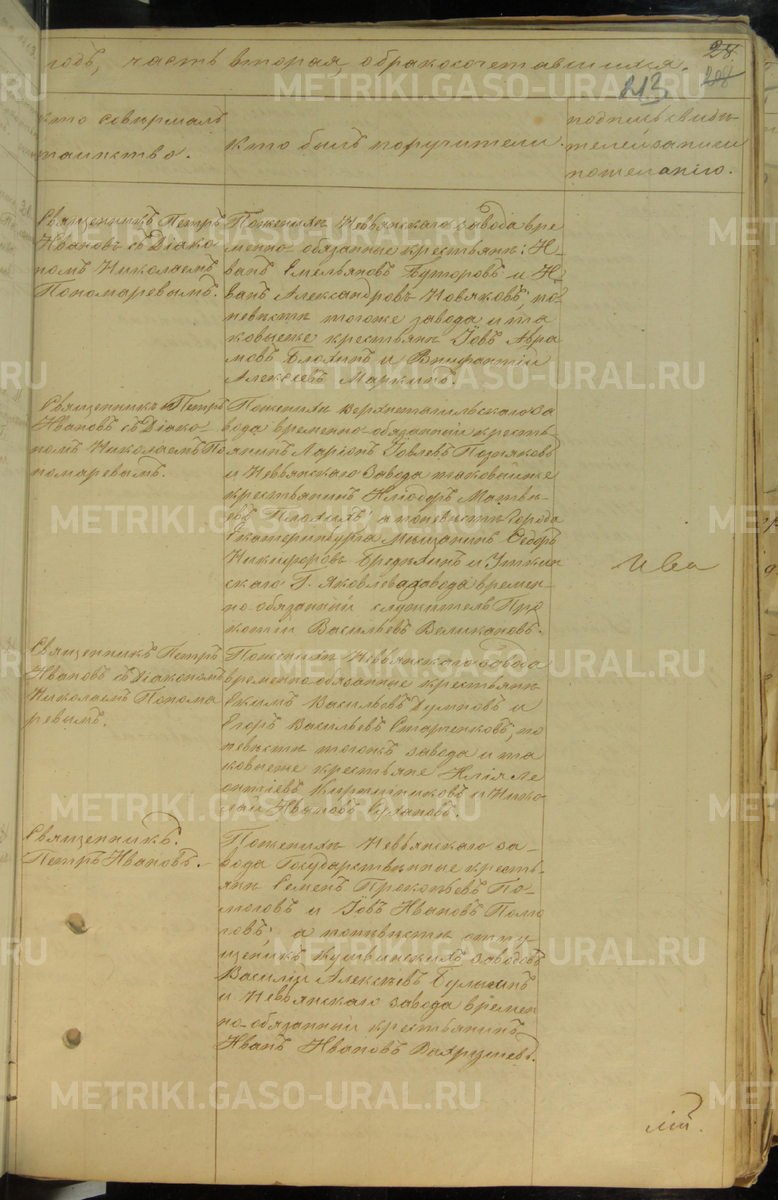 28
годъ, часть вторая, обракосочетавшихся.
213
208
кто совершалъ
таинство.
кто былъ поручители.
подпись свидѣ-
телей записи
пожеланію.
Священникъ Петръ
Ивановъ съ Діако-
номъ Николаемъ
Пономаревымъ.
Поженихѣ Невьянскаго завода вре
менно-обязанные крестьяне: И-
ванъ Емельяновъ Буторовъ и И-
ванъ Александровъ Новяковъ, по
невѣстѣ тогоже завода и та
ковыеже крестьяне Іовъ Авра
мовъ Блохинъ и Внифантій
Алексѣевъ Маркинъ.
Священникъ Петръ
Ивановъ съ Діако-
номъ Николаемъ По
номаревымъ.
Поженихѣ Верхнетагильскаго За
вода временно-обязанный кресть
янинъ Ларіонъ Іовлевъ Поздняковъ
и Невьянскаго Завода таковойже
крестьянинъ Иліодоръ Матвѣ-
евъ Плохихъ а поневѣстѣ Города
Екатеринбурга Мѣщанинъ Ѳедоръ
Никифоровъ Бредихинъ и Уткин
скаго Г. Яковлева завода времен-
но-обязанный служитель Про
копій Васильевъ Великановъ.
Священникъ Петръ
Ивановъ съ Діакономъ
Николаемъ Понома
ревымъ.
Поженихѣ Невьянскаго Завода
временно-обязанные крестьяне
Екимъ Васильевъ Думновъ и
Егоръ Васильевъ Старченковъ, по
невѣстѣ тогожъ завода и та
ковыеже крестьяне Илія Ле
онтіевъ Киршинниковъ и Нико
лай Ивановъ Сухановъ.
Священникъ
Петръ Ивановъ.
Поженихѣ Невьянскаго за-
вода Государственные кресть-
яне Семенъ Прокопьевъ По-
моговъ и Іовъ Ивановъ Помо
говъ; а поневѣстѣ отпу
щеникъ Кушвинскихъ заводовъ
Василій Алексѣевъ
и Невьянскаго завода времен
но-обязанный крестьянинъ
Иванъ Ивановъ Вахрушевъ.
лій.
METRIKI.GASO-URAL.RU